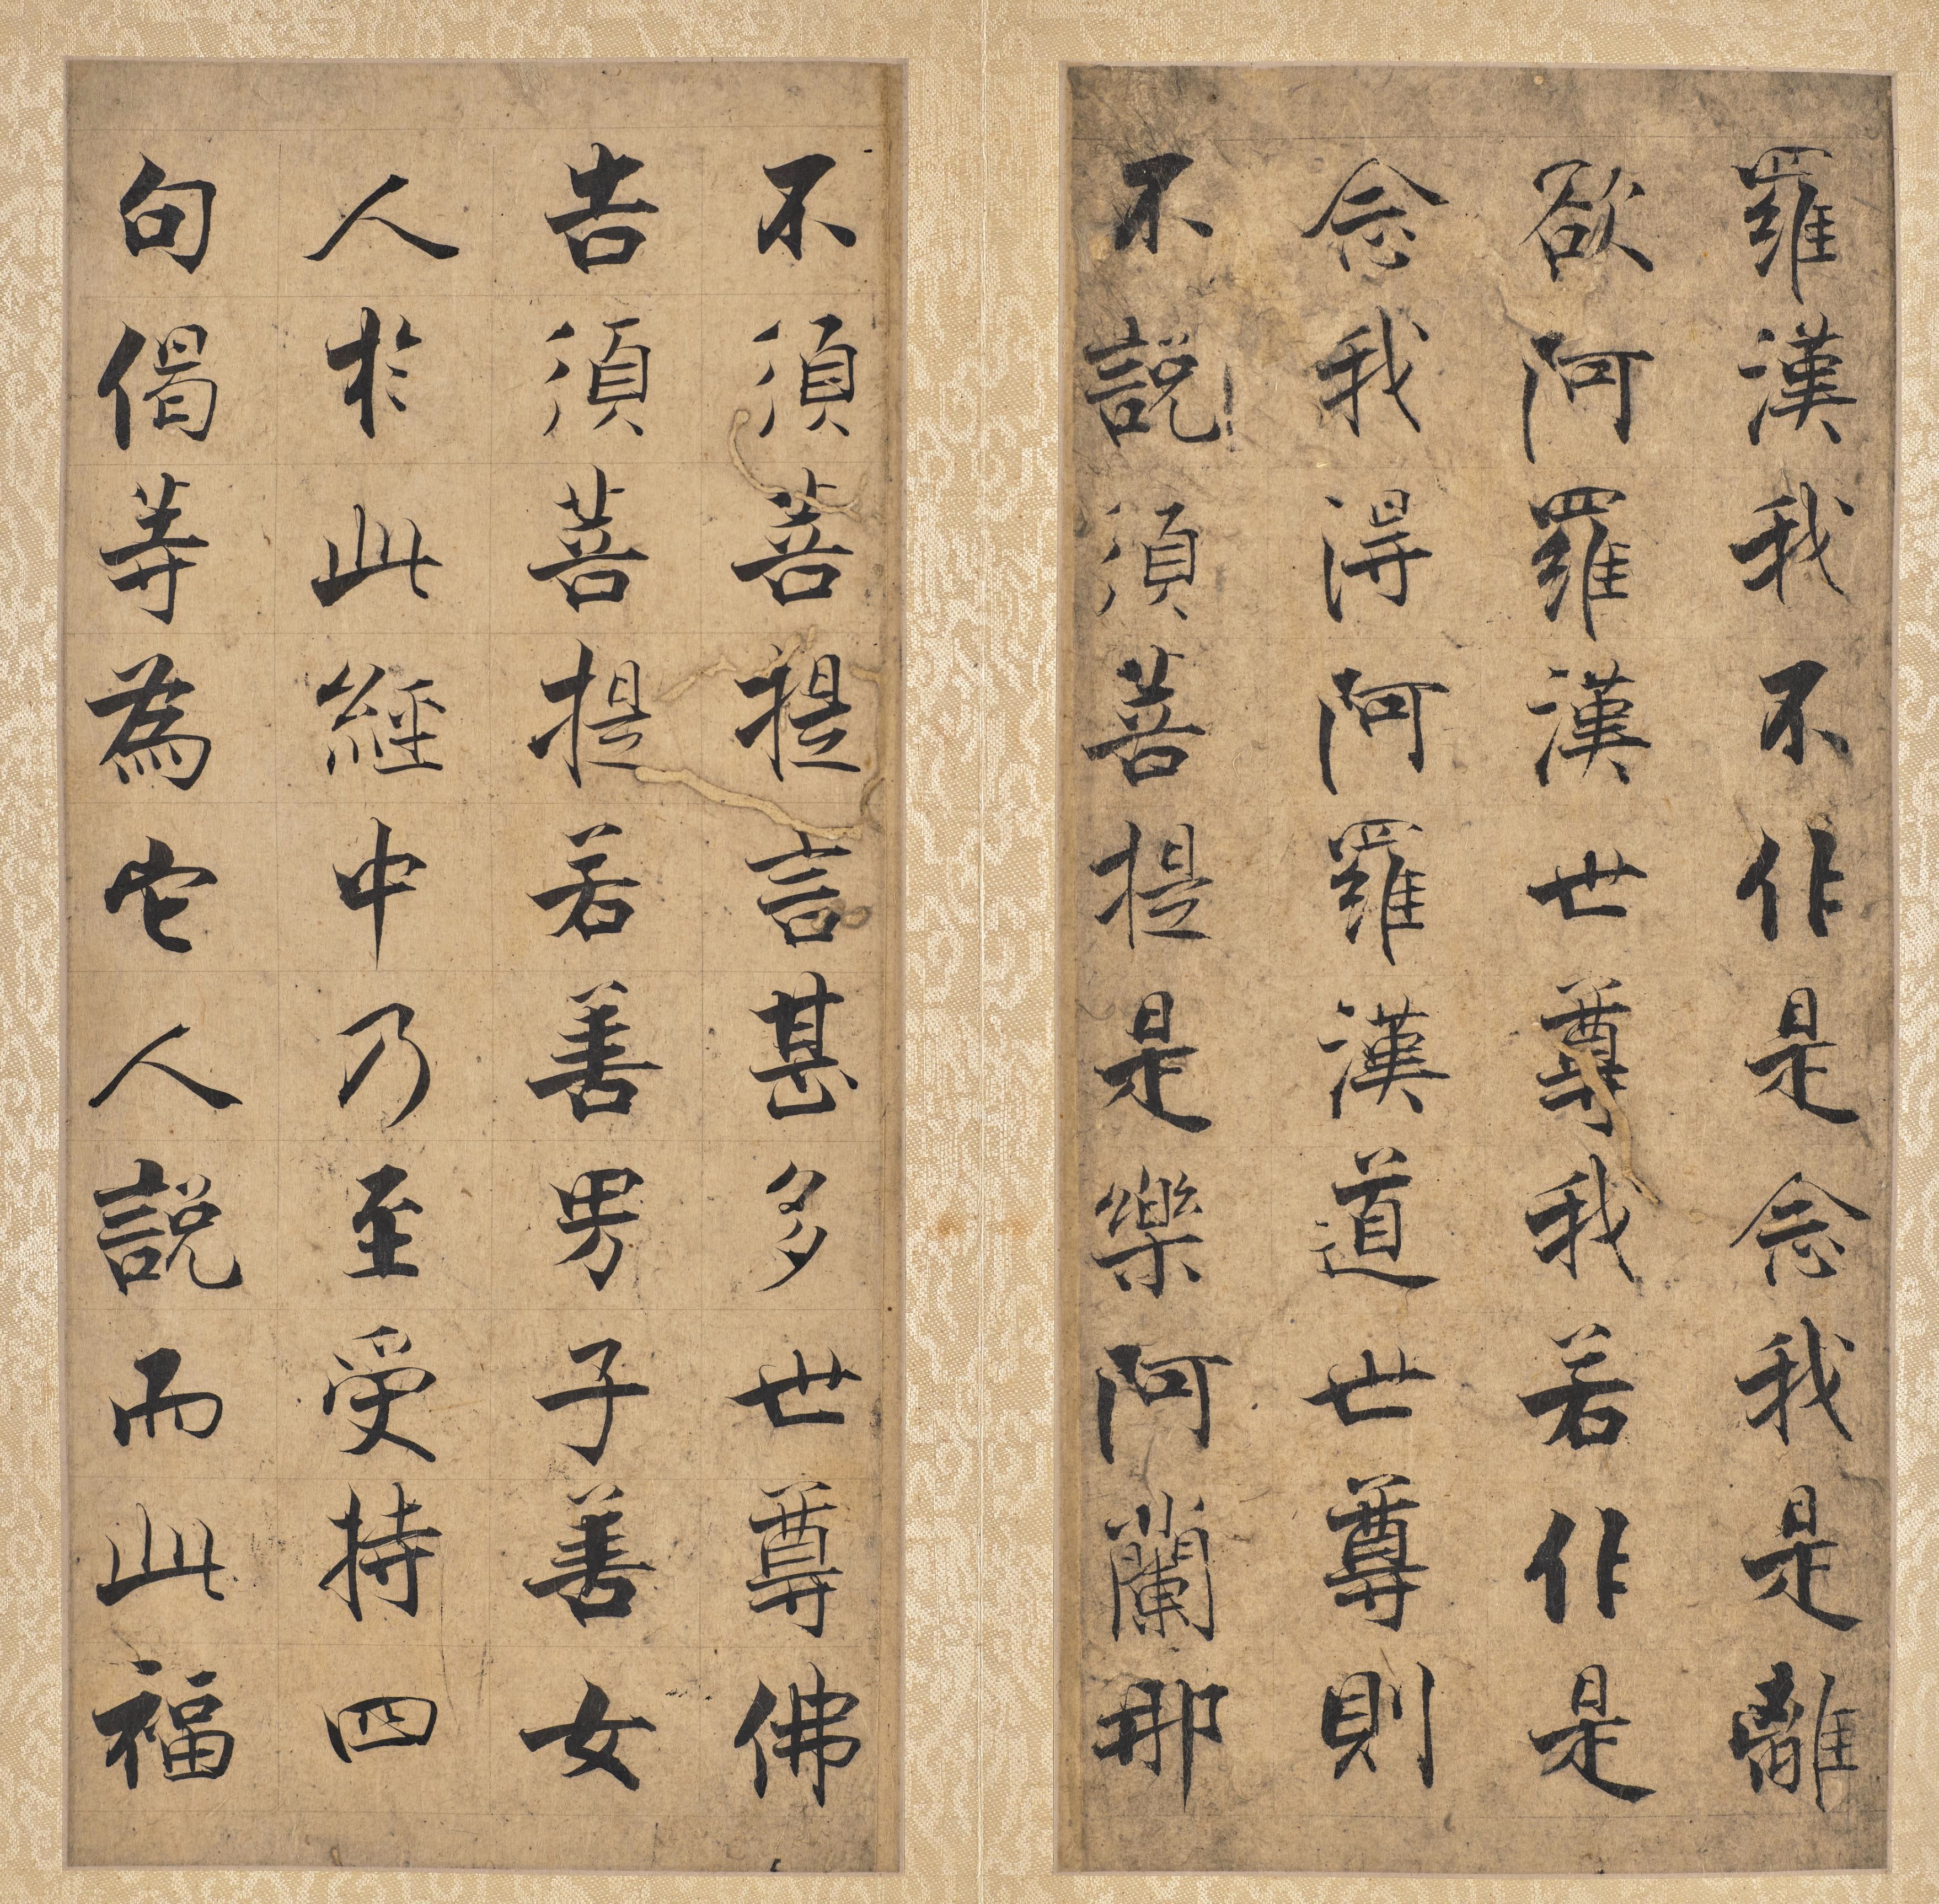 羅漢我不作是念我是離
欲阿羅漢世尊我若作是
念我得阿羅漢道世尊則
不說須菩提是樂阿蘭那
不須菩提言甚多世尊佛
告須菩提若善男子善女
人於此經中乃至受持四
句偈等為它人說而此福